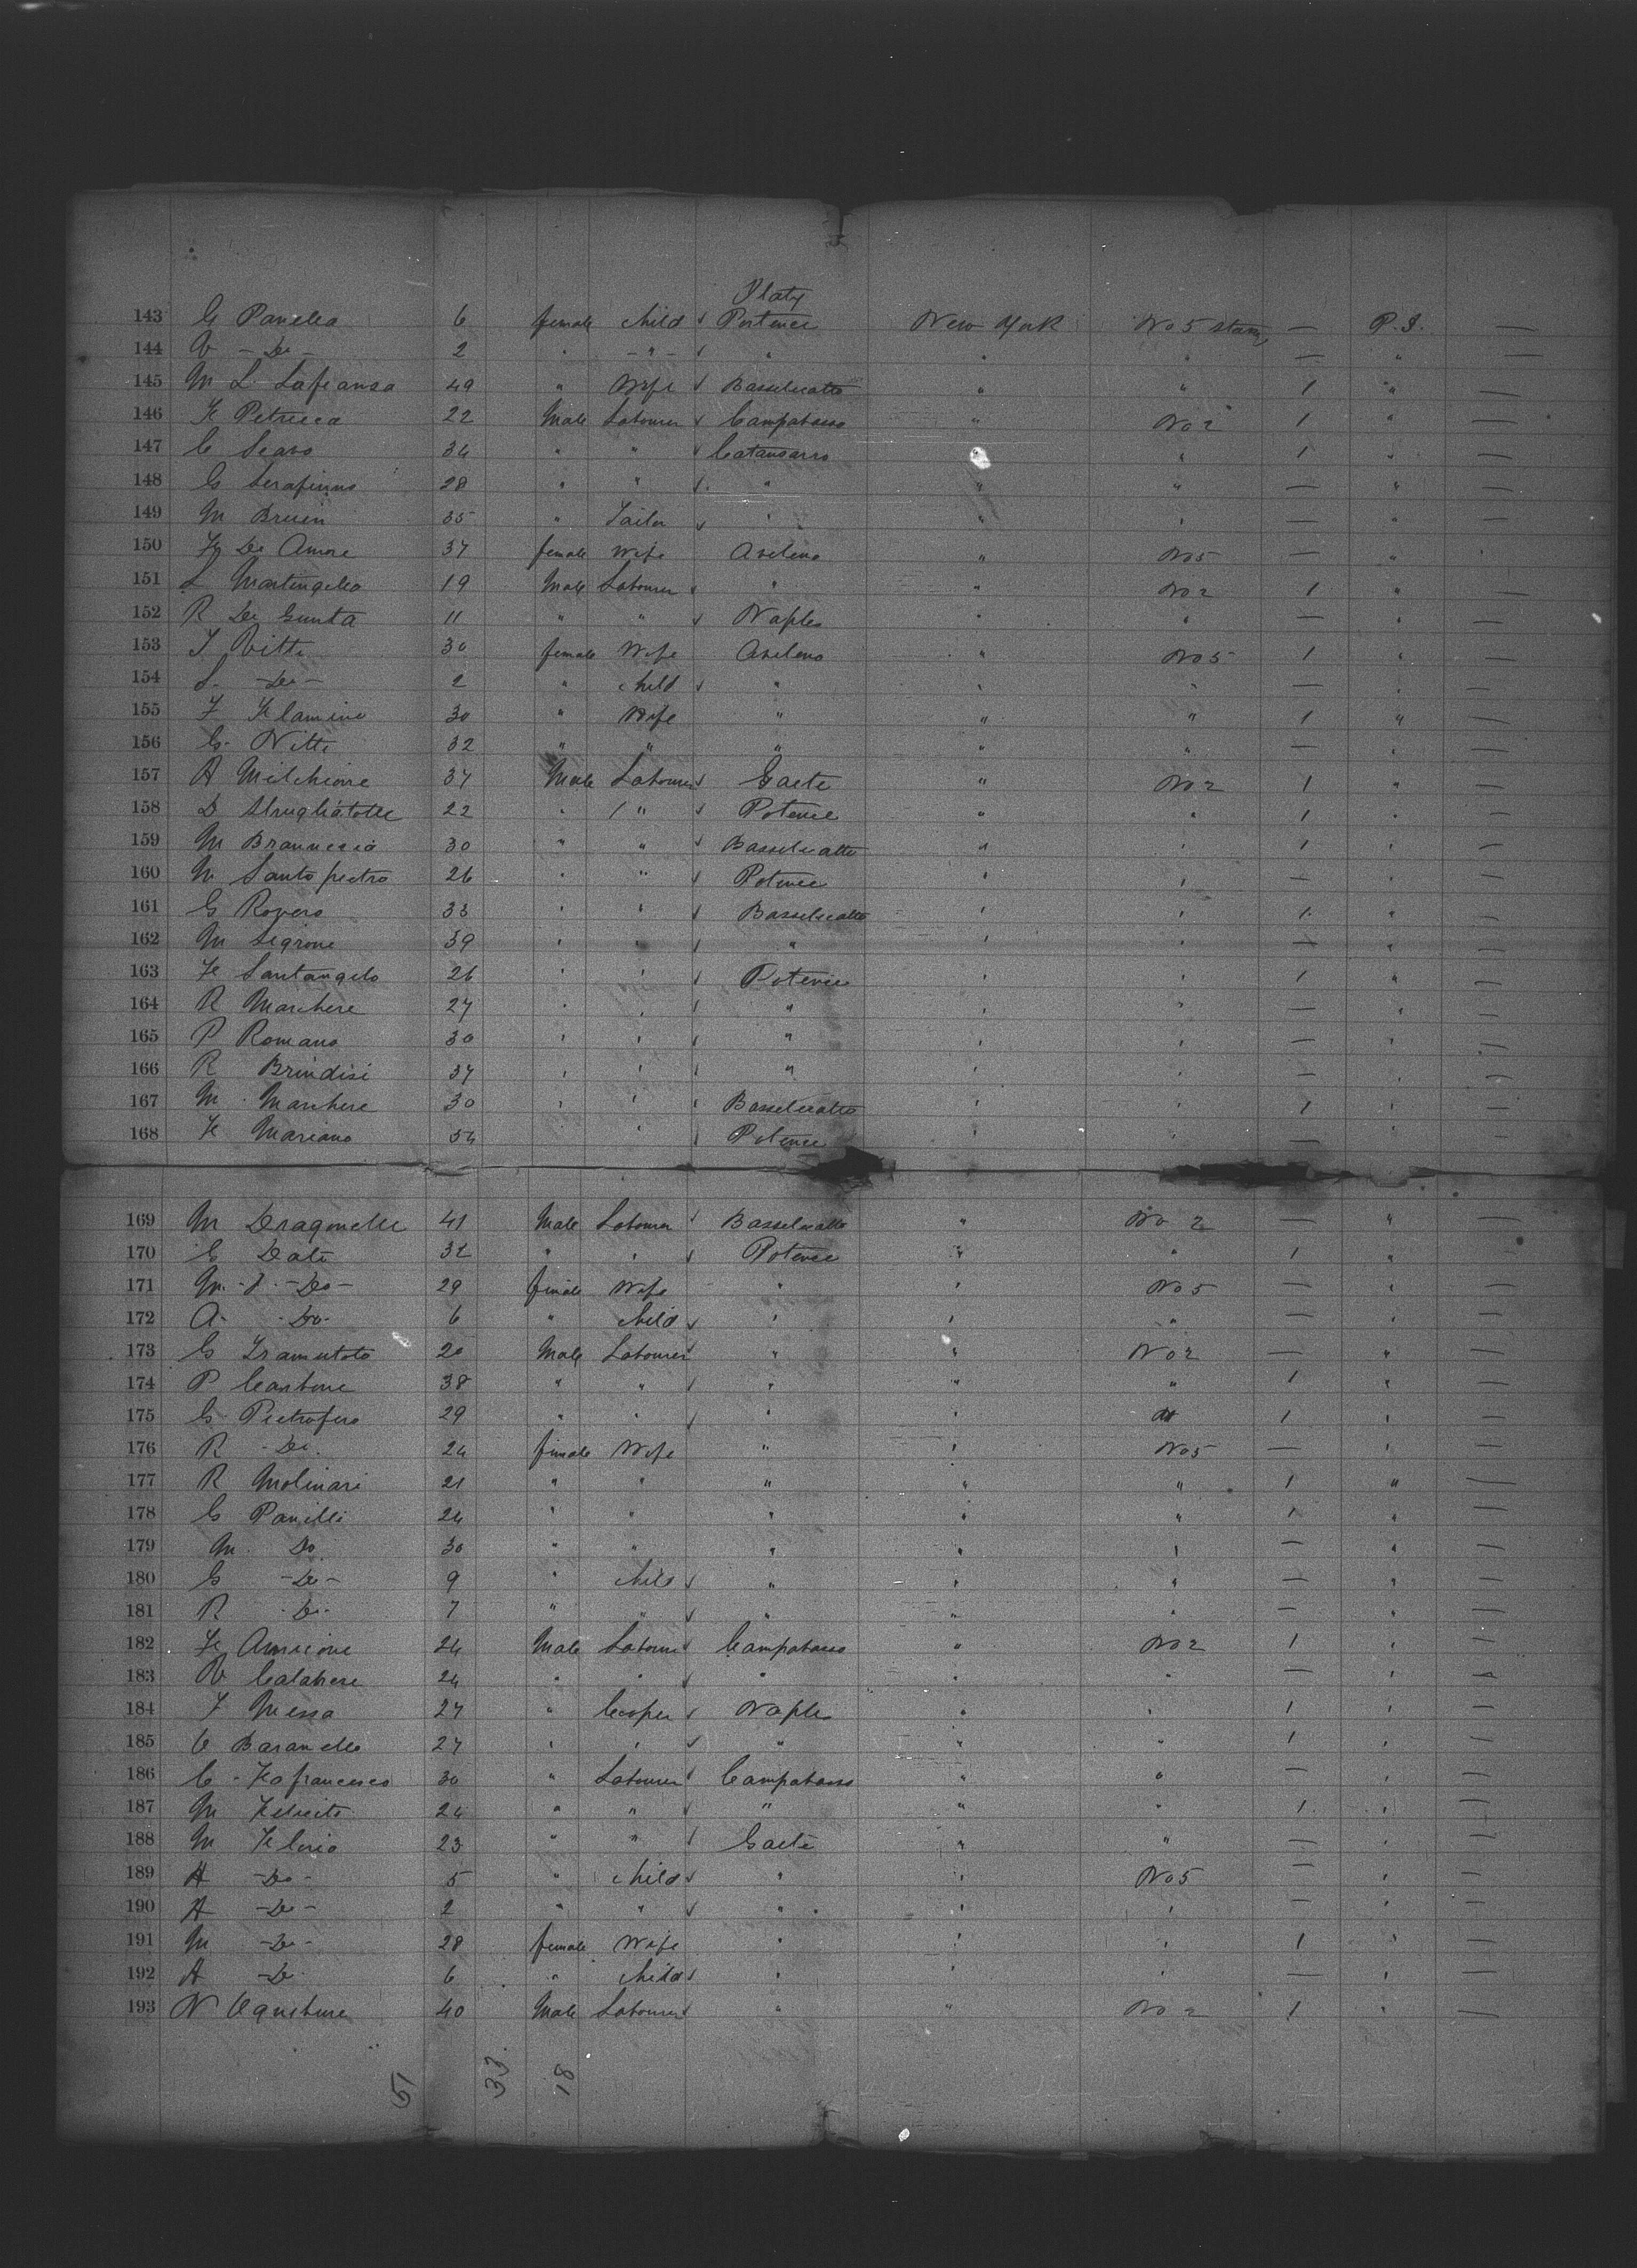 Italy
143 G Panelea 6 female child ✓ Portence New York No 5 stamg — P.I. —
144 V - Do - 2 " - " - ✓ " " " — " —
145 M L Lafransa 49 " Wife ✓ Basselicatto " " 1 " —
146 F Petrecca 22 Male Labourer ✓ Campobasso " No 2 1 " —
147 C Scaro 34 " " ✓ Catansarro " " 1 " —
148 G Serafinno 28 " " ✓ " " " — " —
149 M Bruin 35 " Tailor ✓ " " " — " —
150 F De Amore 37 female Wife Aveleno " No 5 — "
151 L Martingello 19 Male Labourer ✓ " " No 2 1 " —
152 R De Gunta 11 " " ✓ Naples " " — " —
153 T Vitti 30 female Wife Aveleno " No 5 1 " —
154 S - Do - 2 " child ✓ " " " — " —
155 F Flamine 30 " Wife " " " 1 " —
156 G Nitti 32 " " " " " — " —
157 A Milchiore 37 Male Labourer ✓ Gaete " No 2 1 " —
158 D Strugliatolle 22 " " ✓ Potence " " 1 " —
159 M Brannesia 30 " " ✓ Basselicatto " " 1 " —
160 N Santopietro 26 " " ✓ Potence " " — " —
161 G Rovero 33 " " ✓ Basselicatto " " 1 " —
162 M Sigrone 39 " " ✓ " " " — " —
163 F Santangelo 26 " " ✓ Potence " " 1 " —
164 R Marchese 27 " " ✓ " " " — " —
165 P Romano 30 " " ✓ " " " — " —
166 R Brindisi 37 " " ✓ " " " — " —
167 M Marchese 30 " " ✓ Basselicatto " " 1 " —
168 F Mariano 34 " " ✓ Potence " " — " —
169 M Dragonelle 41 Male Labourer ✓ Basselicatto " No 2 — " —
170 G Dati 32 " " ✓ Potence " " 1 " —
171 M. F. - Do - 29 female Wife " " No 5 — " —
172 A. - Do - 6 " child ✓ " " " — " —
173 G Tramutoto 20 Male Labourer ✓ " " No 2 — " —
174 P Carbone 38 " " ✓ " " " 1 " —
175 G Pietrofero 29 " " ✓ " " " 1 " —
176 R - Do. 24 female Wife " " No 5 — " —
177 R Molinari 21 " " " " " 1 " —
178 G Panelli 24 " " " " " 1 " —
179 M. Do 30 " " " " " — " —
180 G - Do - 9 " child ✓ " " " — " —
181 R - Do - 7 " " ✓ " " " — " —
182 F Amicone 24 Male Labourer ✓ Campobasso " No 2 1 " —
183 V Calabrese 24 " " ✓ " " " — " —
184 F Messa 27 " Cooper ✓ Naples " " 1 " —
185 C Baranello 27 " " ✓ " " " 1 " —
186 C Fafrancesco 30 " Labourer ✓ Campobasso " " — " —
187 M Felicite 24 " " ✓ " " " 1 " —
188 M Florio 23 " " ✓ Gaete " " — " —
189 A - Do - 5 " child ✓ " " No 5 — " —
190 A - Do - 2 " " ✓ " " " — " —
191 M - Do - 28 female Wife " " " 1 " —
192 A - Do - 6 " child ✓ " " " — " —
193 N 40 Male Labourer ✓ " " No 2 1 " —
51 33 18